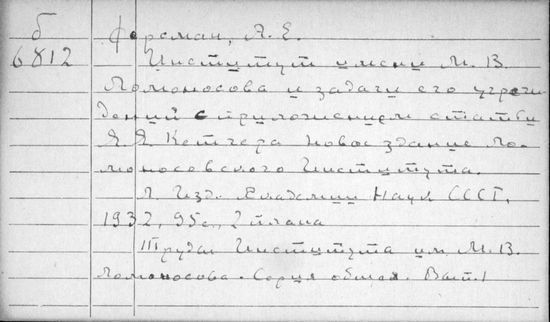 б
6812
Ферсман, А. Е.
Институт имени М. В.
Ломоносова и задачи его учреж
дений с приложением статьи
Я. Я Кетчера Новое здание Ло-
моносовского Института.
Л. Изд. Академии Наук СССР,
1932, 95с., 2 плана
Труды Института им. М. В.
Ломоносова. Серия общая. Вып. 1